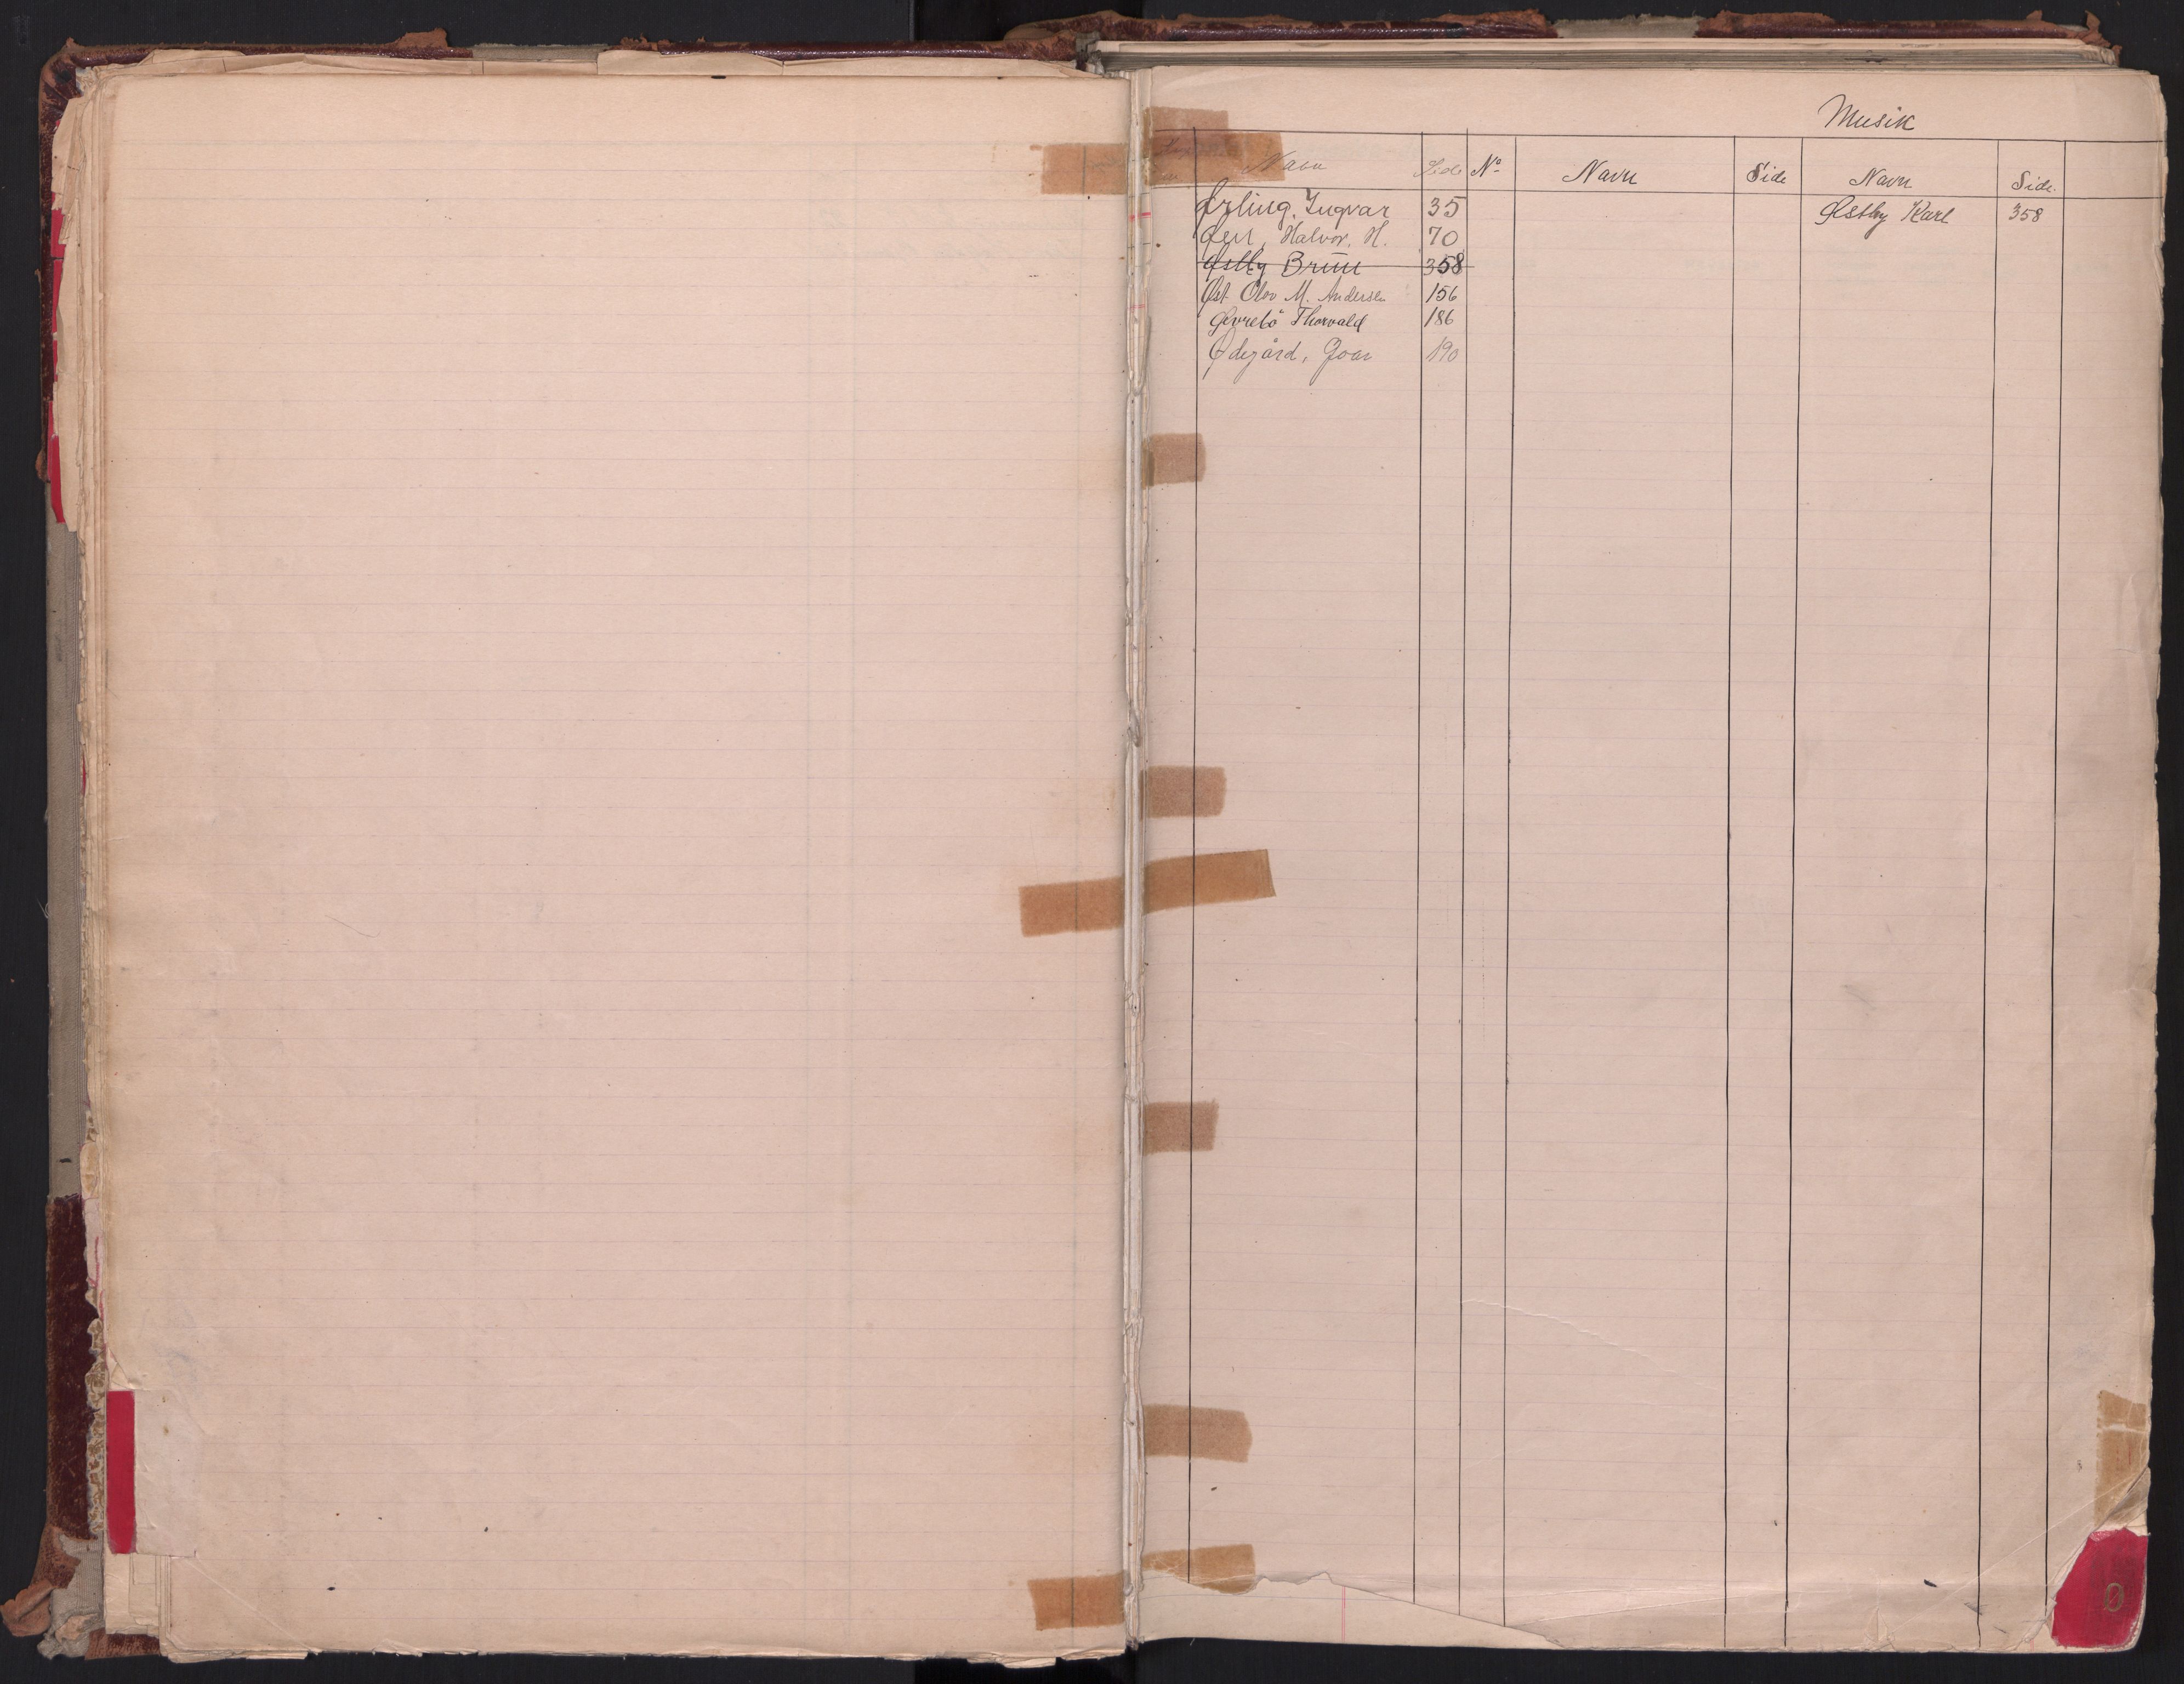 Musik
Navn Side No Navn Side Navn Side.
Ørling, Ingvar 35 Østby Karl 358
Øen, Halvor. H. 70
Østby Brun 358
Øst Olov M. Andersen 156
Øvrebö Thorvald 186
Ødegård, Goar 190
Ø